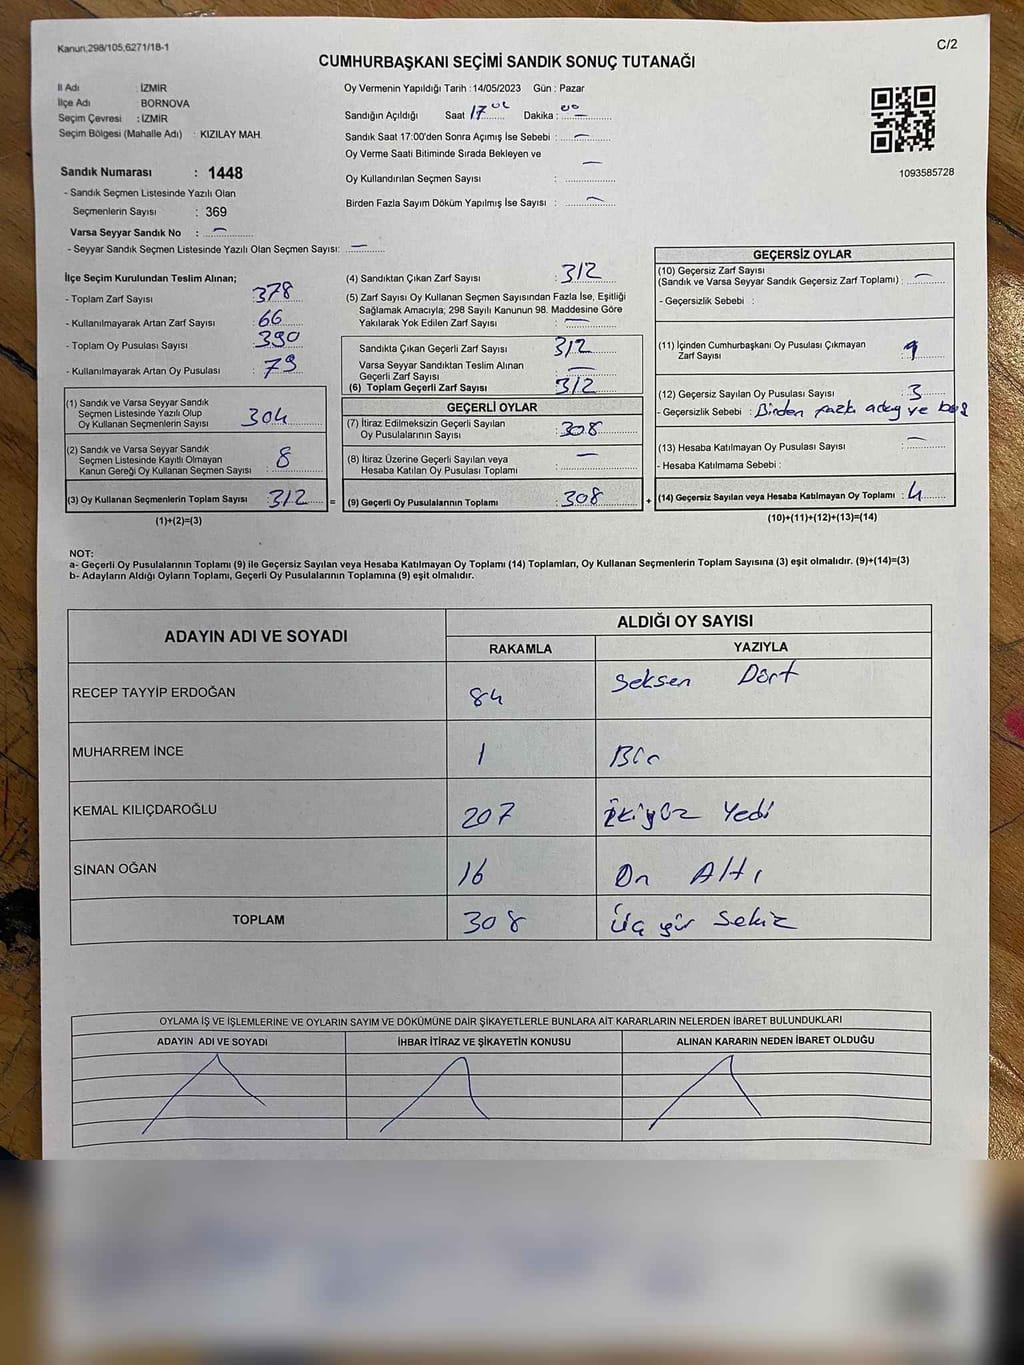 Kanun;298/105,6271/18-1
C/2
CUMHURBAŞKANI SEÇİMİ SANDIK SONUÇ TUTANAĞI
İl Adı : İZMİR
İlçe Adı BORNOVA
Seçim Çevresi : İZMİR
Seçim Bölgesi (Mahalle Adı) : KIZILAY MAH.
Sandık Numarası : 1448
- Sandık Seçmen Listesinde Yazılı Olan
Seçmenlerin Sayısı : 369
Varsa Seyyar Sandık No : —
- Seyyar Sandık Seçmen Listesinde Yazılı Olan Seçmen Sayısı: —
Oy Vermenin Yapıldığı Tarih : 14/05/2023 Gün : Pazar
Sandığın Açıldığı Saat 17 Dakika :
Sandık Saat 17:00'den Sonra Açılmış İse Sebebi : —
Oy Verme Saati Bitiminde Sırada Bekleyen ve
Oy Kullandırılan Seçmen Sayısı : —
Birden Fazla Sayım Döküm Yapılmış İse Sayısı : —
1093585728
İlçe Seçim Kurulundan Teslim Alınan;
- Toplam Zarf Sayısı : 378
- Kullanılmayarak Artan Zarf Sayısı : 66
- Toplam Oy Pusulası Sayısı : 390
- Kullanılmayarak Artan Oy Pusulası : 79
(1) Sandık ve Varsa Seyyar Sandık
Seçmen Listesinde Yazılı Olup
Oy Kullanan Seçmenlerin Sayısı : 304
(2) Sandık ve Varsa Seyyar Sandık
Seçmen Listesinde Kayıtlı Olmayan
Kanun Gereği Oy Kullanan Seçmen Sayısı : 8
(3) Oy Kullanan Seçmenlerin Toplam Sayısı : 312 =
(1)+(2)=(3)
(4) Sandıktan Çıkan Zarf Sayısı : 312
(5) Zarf Sayısı Oy Kullanan Seçmen Sayısından Fazla İse, Eşitliği
Sağlamak Amacıyla; 298 Sayılı Kanunun 98. Maddesine Göre
Yakılarak Yok Edilen Zarf Sayısı : —
Sandıkta Çıkan Geçerli Zarf Sayısı : 312
Varsa Seyyar Sandıktan Teslim Alınan
Geçerli Zarf Sayısı : —
(6) Toplam Geçerli Zarf Sayısı : 312
GEÇERLİ OYLAR
(7) İtiraz Edilmeksizin Geçerli Sayılan
Oy Pusulalarının Sayısı : 308
(8) İtiraz Üzerine Geçerli Sayılan veya
Hesaba Katılan Oy Pusulası Toplamı : —
(9) Geçerli Oy Pusulalarının Toplamı : 308 +
GEÇERSİZ OYLAR
(10) Geçersiz Zarf Sayısı
(Sandık ve Varsa Seyyar Sandık Geçersiz Zarf Toplamı) : —
- Geçersizlik Sebebi :
(11) İçinden Cumhurbaşkanı Oy Pusulası Çıkmayan
Zarf Sayısı :
(12) Geçersiz Sayılan Oy Pusulası Sayısı : 3
- Geçersizlik Sebebi : Birden fazla aday ve boş
(13) Hesaba Katılmayan Oy Pusulası Sayısı : —
- Hesaba Katılmama Sebebi :
(14) Geçersiz Sayılan veya Hesaba Katılmayan Oy Toplamı : 4
(10)+(11)+(12)+(13)=(14)
NOT:
a- Geçerli Oy Pusulalarının Toplamı (9) ile Geçersiz Sayılan veya Hesaba Katılmayan Oy Toplamı (14) Toplamları, Oy Kullanan Seçmenlerin Toplam Sayısına (3) eşit olmalıdır. (9)+(14)=(3)
b- Adayların Aldığı Oyların Toplamı, Geçerli Oy Pusulalarının Toplamına (9) eşit olmalıdır.
ADAYIN ADI VE SOYADI
ALDIĞI OY SAYISI
RAKAMLA YAZIYLA
RECEP TAYYİP ERDOĞAN 84 Seksen Dört
MUHARREM İNCE 1 Bir
KEMAL KILIÇDAROĞLU 207 İkiyüz Yedi
SİNAN OĞAN 16 On Altı
TOPLAM 308 Üç yüz Sekiz
OYLAMA İŞ VE İŞLEMLERİNE VE OYLARIN SAYIM VE DÖKÜMÜNE DAİR ŞİKAYETLERLE BUNLARA AİT KARARLARIN NELERDEN İBARET BULUNDUKLARI
ADAYIN ADI VE SOYADI İHBAR İTİRAZ VE ŞİKAYETİN KONUSU ALINAN KARARIN NEDEN İBARET OLDUĞU